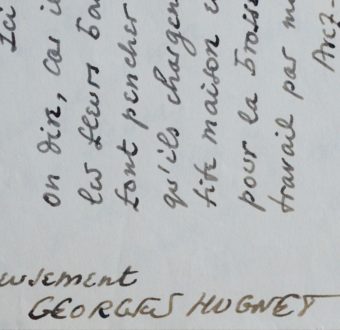 Ici
on dire, cas
les fleurs
font pencher
qu'ils chargen
tite maison
pour la bross
travail par
usement
GEORGES HUGNET